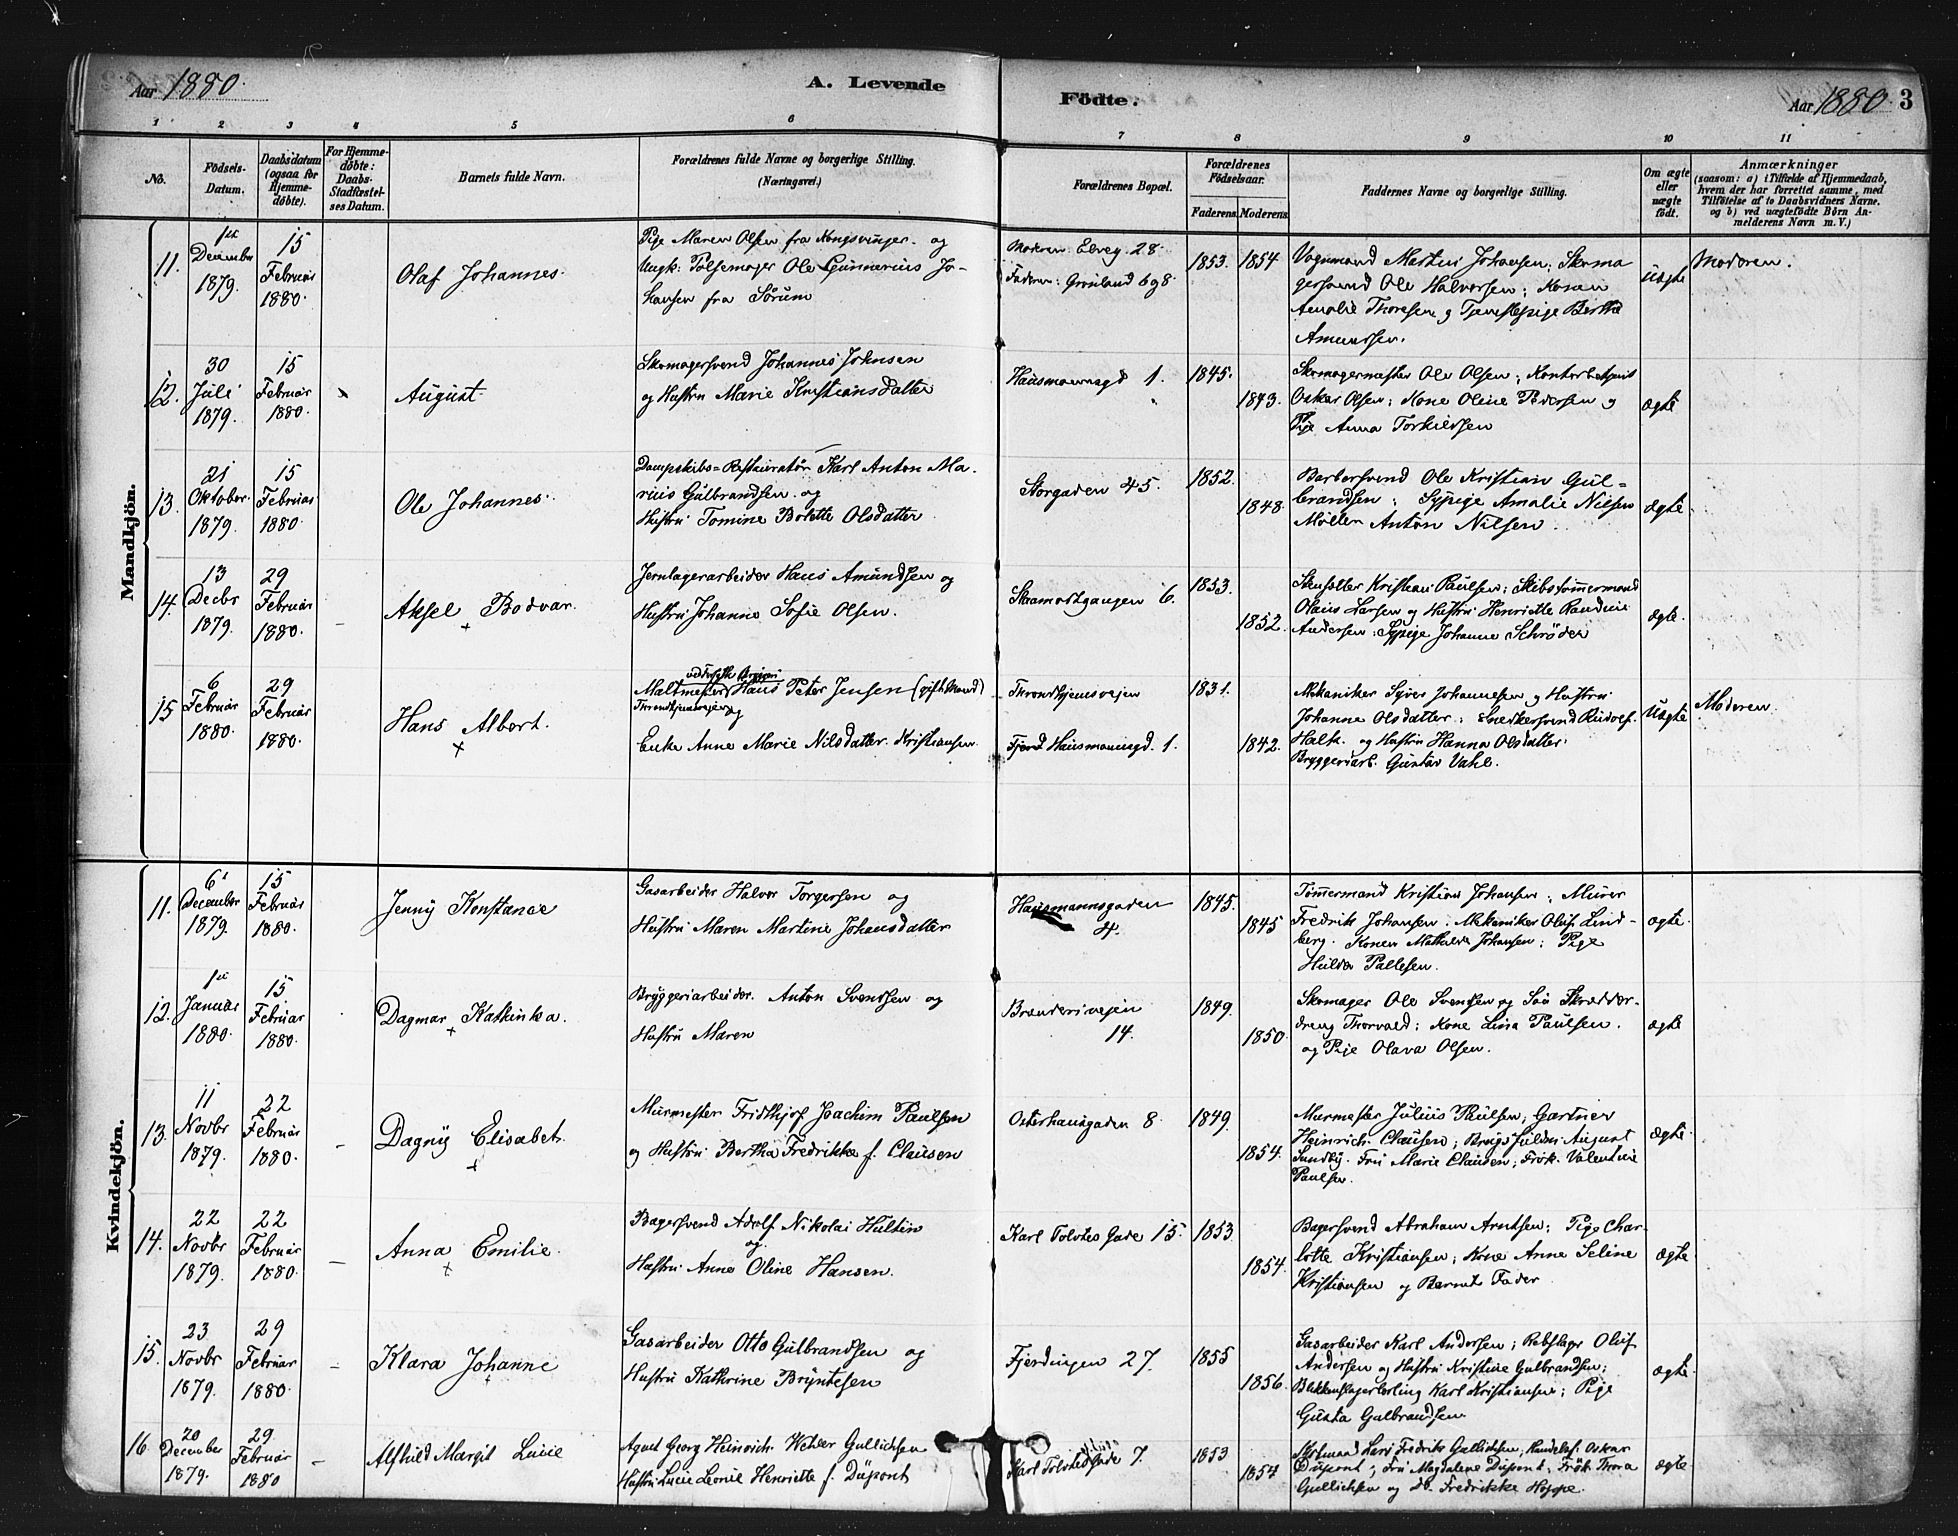 Aar 1880.
A. Levende Födte.
Aar 1880. 3
1 2 3 4 5 6 7 8 9 10 11
No.
Födsels-
Datum.
Daabsdatum
(ogsaa for
Hjemme-
døbte).
For Hjemme-
døbte:
Daabs-
Stadfæstel-
ses Datum.
Barnets fulde Navn.
Forældrenes fulde Navne og borgerlige Stilling.
(Næringsvei.)
Forældrenes Bopæl.
Forældrenes
Födselsaar.
Faderens. Moderens.
Faddernes Navne og borgerlige Stilling.
Om ægte
eller
uægte
født.
Anmærkninger
(saasom: a) i Tilfælde af Hjemmedaab,
hvem der har forrettet samme, med
Tilføielse af to Daabsvidners Navne.
og b) ved uægtefødte Børn An-
melderens Navn m. V.)
Mandkjön.
11.
1st
December
1879.
15
Februar
1880.
Olaf Johannes.
Pige Maren Olsen fra Kongsvinger og
Ungk: Pølsemager Ole Gunnerius Jo-
hansen fra Sørum
Moderen: Elveg 28
Faderen: Grønland 6 og 8
1853. 1854
Vognmand Martin Johansen; Skoma
gersvend Ole Halvorsen; Konen
Amalie Thoresen og Tjenestepige Berthe
Amundsen.
Uægte
Moderen.
12.
30
Juli
1879.
15
Februar
1880.
August
Skomagersvend Johannes Johnsen
og Hustru Marie Kristiansdatter
Hausmannsgd 1.
1845.
1843.
Skomagermester Ole Olsen; Kontorbetjent
Oskar Olsen; Kone Oline Pedersen og
Pige Anna Torkildsen
ægte
13.
21
Oktober
1879.
15
Februar
1880.
Ole Johannes.
Dampskibs-Restauratør Karl Anton Ma-
rius Gulbrandsen og
Hustru Tomine Bolette Olsdatter
Storgaden 45.
1852.
1848.
Barbersvend Ole Kristian Gul-
brandsen; Sypige Amalie Nilsen
Møller Anton Nilsen
ægte
14.
13
Decbr
1879.
29
Februar
1880.
Aksel Bodvar.
Jernlagerarbeider Hans Amundsen og
Hustru Johanne Sofie Olsen.
6.
1853.
1852.
Kristian Paulsen; Skibstømmermand
Olaus Larsen og Hustru Henriette
Andersen; Sypige Johanne Schrøder
ægte.
15
6
Februar
1880.
29
Februar
1880.
Hans Albert.
Maltmester Hans Peter Jensen (gift Mand)
Throndhjemsveien og
Enke Anne Marie Nilsdatter Kristiansen
Throndhjemsvejen
Hausmannsgd. 1.
1831.
1842.
Mekaniker Syver Johannesen og Hustru
Johanne Olsdatter; Snedkersvend Rudolf
og Hustru Hanna Olsdatter.
Bryggeriarb. Gustav Vahl.
Uægte
Moderen
Kvindekjön.
11.
6
December
1879.
15
Februar
1880.
Jenny Konstance
Gasarbeider Halvor Torgersen og
Hustru Maren Martine Johansdatter
Hausmannsgaden
4.
1845.
1845
Tømmermand Kristian Johansen; Murer
Fredrik Johansen; Mekaniker Oluf Lind-
berg. Konen Mathilde Johansen; Pige
Hulda Pallesen.
ægte.
12.
1st
Januar
1880.
15
Februar
1880.
Dagmar Kathinka.
Bryggeriarbeider. Anton Svendsen og
Hustru Maren
Brænderivejen
14.
1849.
1850.
Skomager Ole Svendsen og Søn Skrædder-
dreng Thorvald; Kone Lina Paulsen.
og Pige Olava Olsen.
ægte
13.
11
Novbr
1879.
22
Februar
1880.
Dagny Elisabet.
Murmester Fridthjof Joachim Paulsen
og Hustru Bertha Fredrikke f. Clausen
Osterhausgaden 8.
1849.
1854.
Murmester Julius Paulsen; Gartner
Heinrich Clausen; August
Sundby. Fru Marie Clausen; Frøk. Valentine
Paulsen.
ægte.
14.
22
Novbr
1879.
22
Februar
1880.
Anna Emilie.
Bagersvend Adolf Nikolai Hultin
og
Hustru Anne Oline Hansen.
Karl Tolvtes Gade 15.
1853.
1854.
Bagersvend Abraham Arntsen; Pige Char-
lotte Kristiansen; Kone Anne Seline
Kristiansen og Barnets Fader
ægte
15.
23
Novbr
1879.
29
Februar
1880.
Klara Johanne
Gasarbeider Otto Gulbrandsen og
Hustru Kathrine Bryntesen
Fjerdingen 27.
1855
1856.
Gasarbeider Karl Andersen; Rebslager Oluf
Andersen og Hustru Kristine Gulbrandsen;
Blikkenslagerlærling Karl Kristiansen; Pige
Gusta Gulbrandsen
ægte.
16.
20
December
1879.
29
Februar
1880
Alfhild Margit Lucie
Agent Georg Heinrich Gullichsen
Hustru Lucie Leonie Henriette f. Düpont
Karl Tolvtes Gade 7.
1853
1854
Lars Fredrik Gullichsen; Handelsf. Oskar
Düpont; Fru Magdalene Düpont; Frøk. Thora
Gullichsen og Do. Fredrikke Hoppe.
ægte.